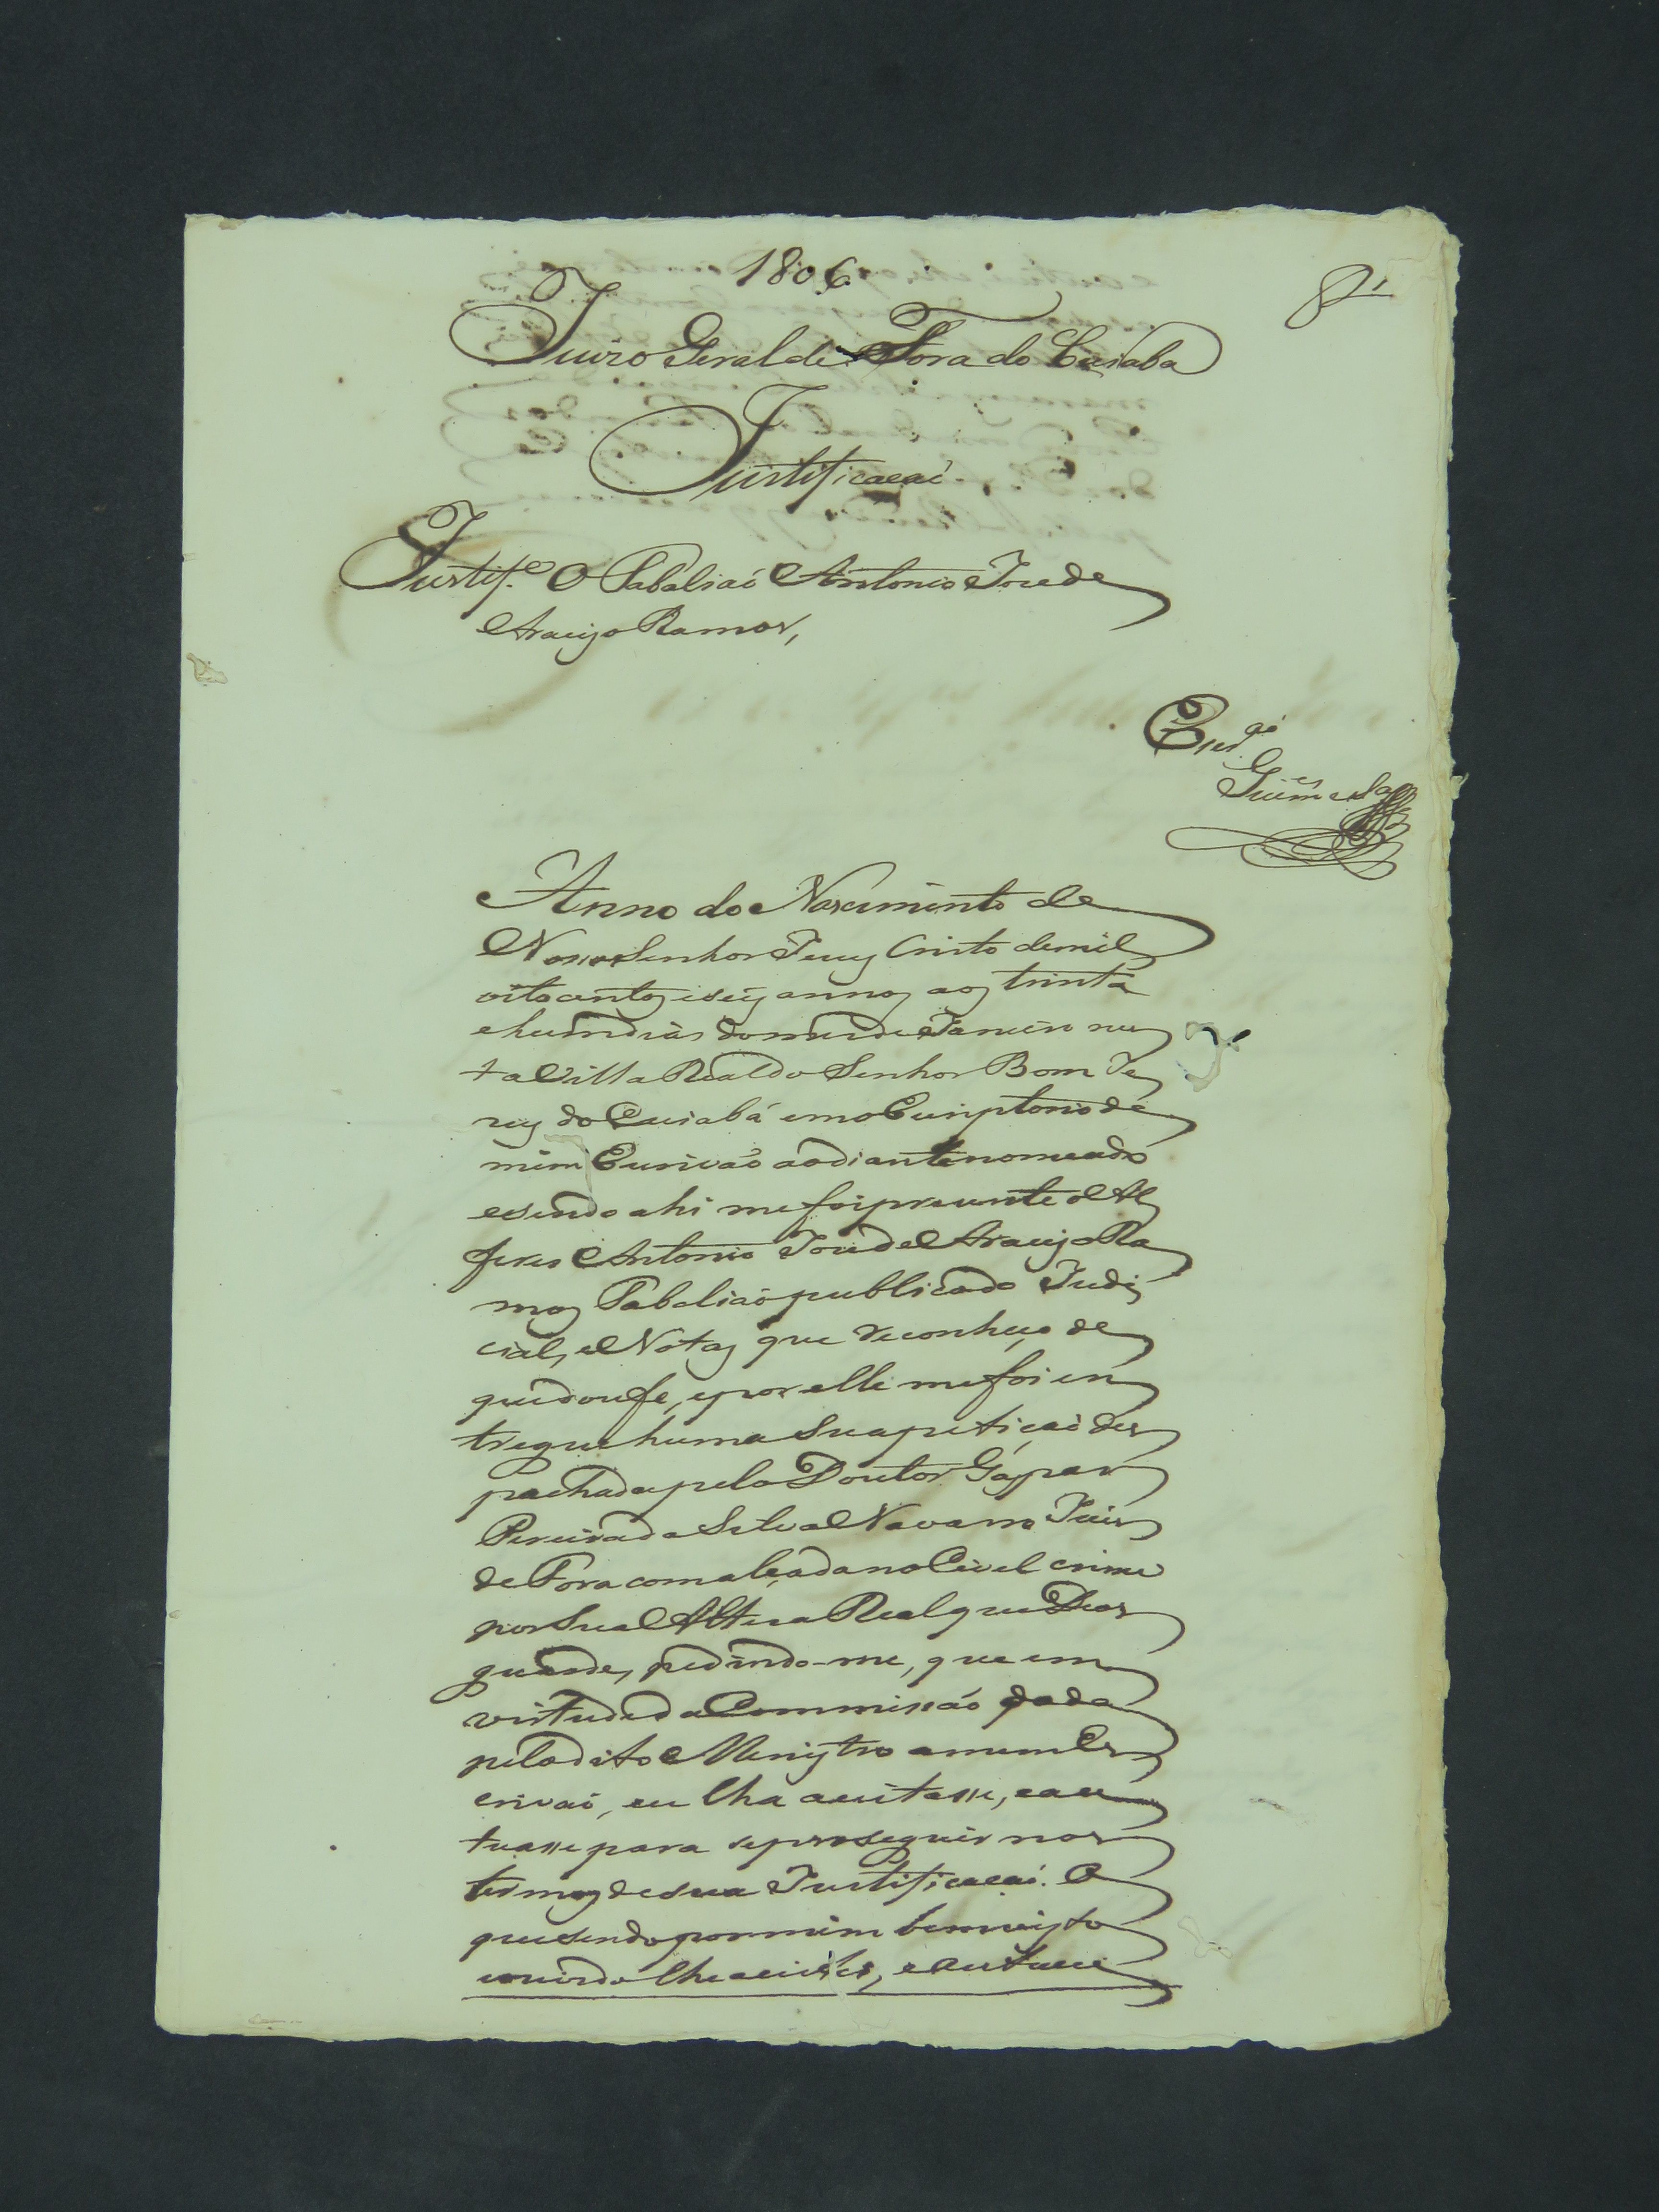 1806
Juizo Geral de Fora do Cuiaba
Justificacaó.
Justif.e O Tabaliaó Antonio Joze de
Araujo Ramos,
Guim.es
Anno do Nascimento de
Nosso Senhor Jezus Cristo de mil
oitocentos e seis annos aos trinta
e hum dias do mes de Janeiro nes
ta Villa Real do Senhor Bom Je
zus do Cuiabá em o Escriptorio de
mim Escrivaó ao diante nomeado
e sendo ahi me foi prezente o Al
feres Antonio Joze de Araujo Ra
mos Tabaliaó publico do Judi
cial, e Notas que reconheço de
que dou fe, e por elle me foi en
tregue huma sua petiçaó des
pachada pelo Doutor Gaspar
Pereira da Silva Navarro Juis
de Fora com alçada no Civel crime
por Sua Alteza Real que Deos
guarde, pedindo-me, que em
virtude da Commissaó dada
pelo dito Menistro a mim Es
crivaó, eu lha aceitasse, e au
tuasse para se proseguir nos
termos de sua Justificacaó. O
que sendo por mim bem visto
e ouvido lhe aceitei, e autuei